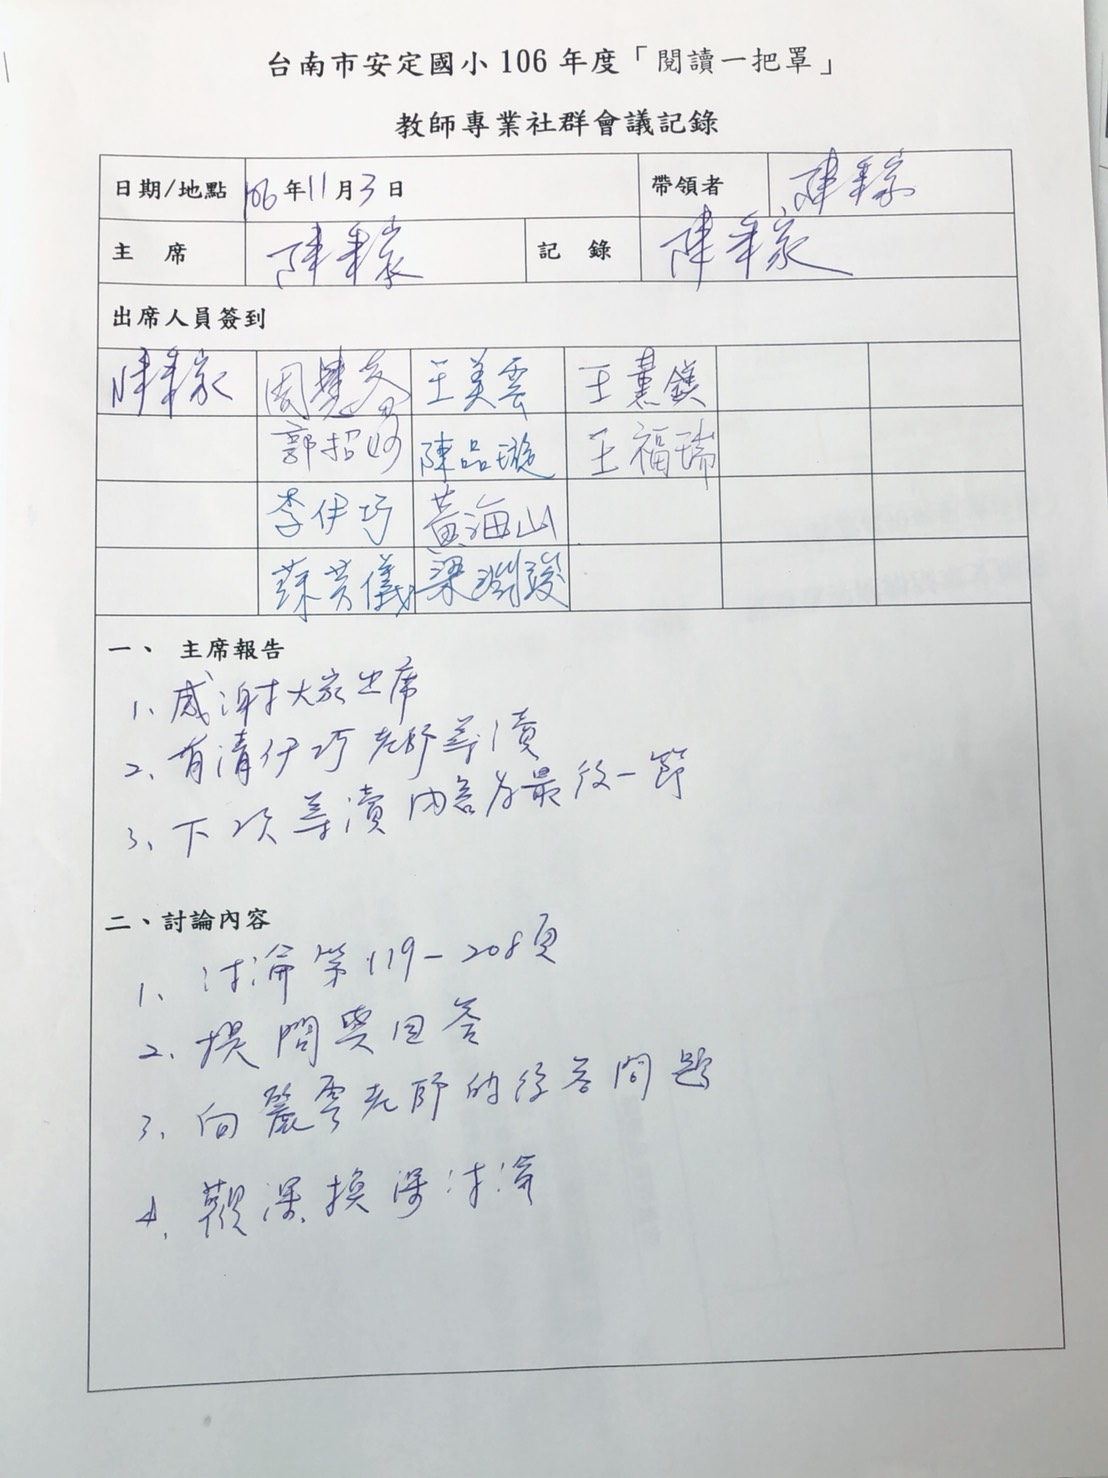 台南市安定國小 106 年度「閱讀一把罩」
教師專業社群會議記錄
日期/地點 106年11月3日 帶領者
主 席 記 錄
出席人員簽到
王美雲 王蕙鎂
陳品璇 王福瑞
李伊巧 黃海山
一、 主席報告
1、感謝大家出席
2、有請伊巧老師導讀
3、下次導讀內容為最後一節
二、討論內容
1、討論第119-208頁
2、提問與回答
3、向麗雲老師的 問題
4、觀課 討論